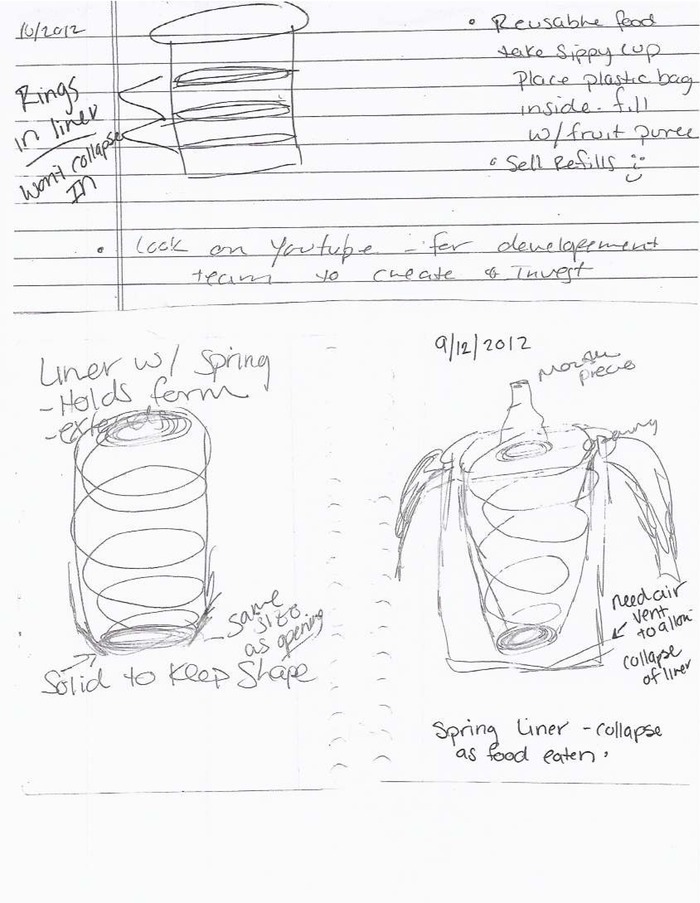 10/2012
• Reusabhe food
take sippy cup
Place plastic bag
inside - fill
w/ fruit puree
• Sell Refills
Rings
in liner
won't collapse
IN
• Look on Youtube - for developement
team to create & Invest
Liner w/ Spring
- Holds form
- extends
Same
size
as opening
Solid to Keep Shape
9/12/2012
piece
need air
vent
to allow
collapse
of liner
Spring Liner - collapse
as food eaten.